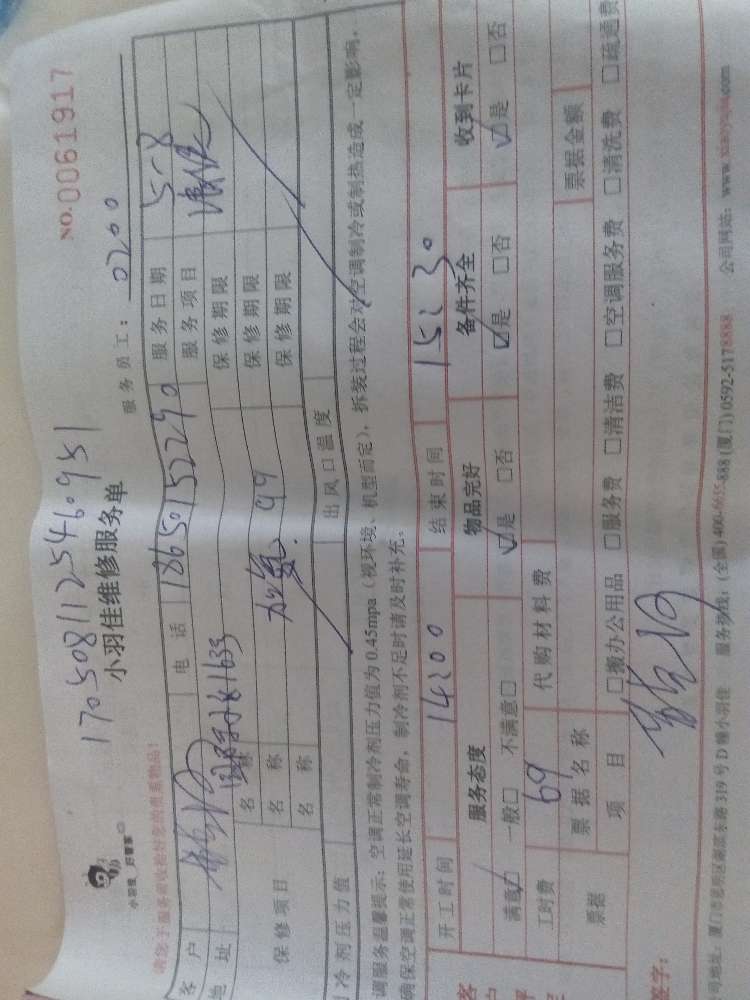 NO.0061917
1705081125460951
小羽佳 好管家
小羽佳维修服务单
服务员工： 0200
请您于服务前收拾好您的贵重物品！
客 户
电 话 18650152290
服务日期 5-8
地 址
服务项目 清洗
保修项目
名 称
保修期限
名 称 加氟 99
保修期限
名 称
保修期限
制冷剂压力值
出风口温度
调服务温馨提示：空调正常制冷剂压力值为0.45mpa（视环境、机型而定），拆装过程会对空调制冷或制热造成一定影响，
确保空调正常使用延长空调寿命，制冷剂不足时请及时补充。
开工时间 14:00
结束时间 15:30
服务态度
物品完好
备件齐全
收到卡片
满意☑ 一般□ 不满意□
☑是 □否
☑是 □否
☑是 □否
工时费 69
代购材料费
票据
票据名称
票据金额
项 目
□搬办公用品 □服务费 □清洁费 □空调服务费 □清洗费 □疏通费
签字：
司地址：厦门市思明区湖滨东路319号D幢小羽佳 服务热线：(全国)400-6655-888 (厦门)0592-5178888 公司网站：www.xiaoyujia.com